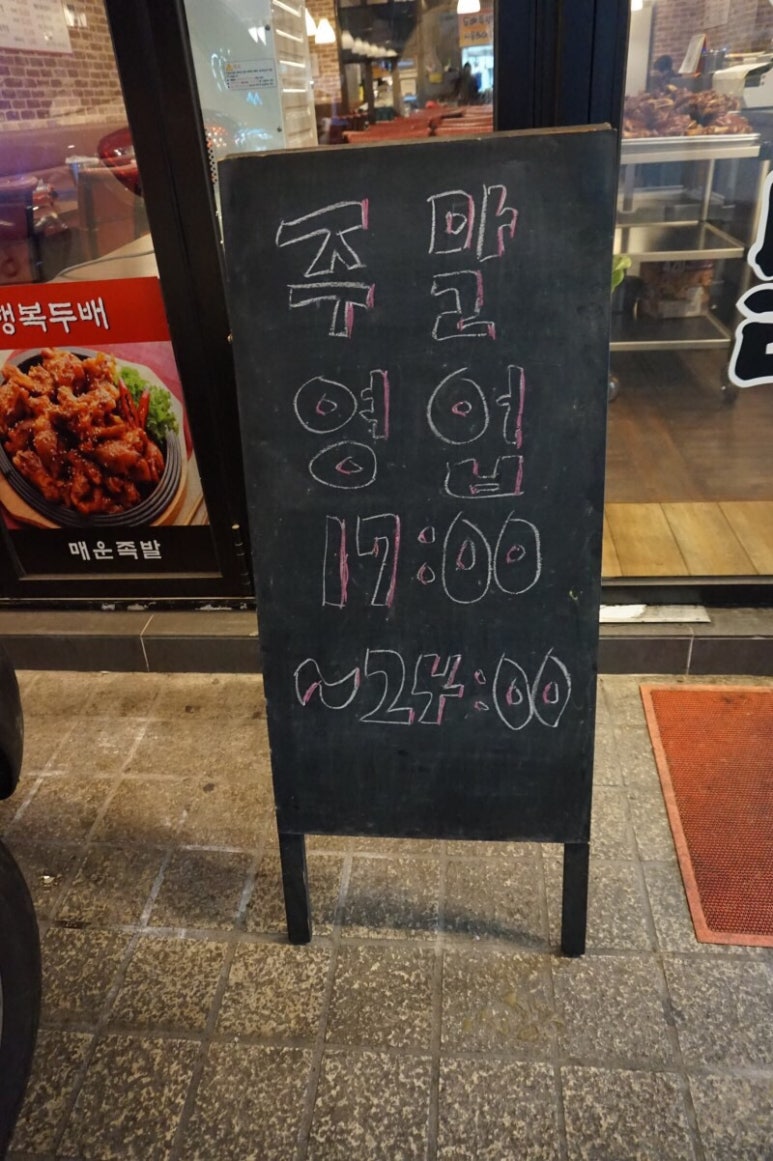 주말
영업
17:00
~24:00
행복두배
매운족발